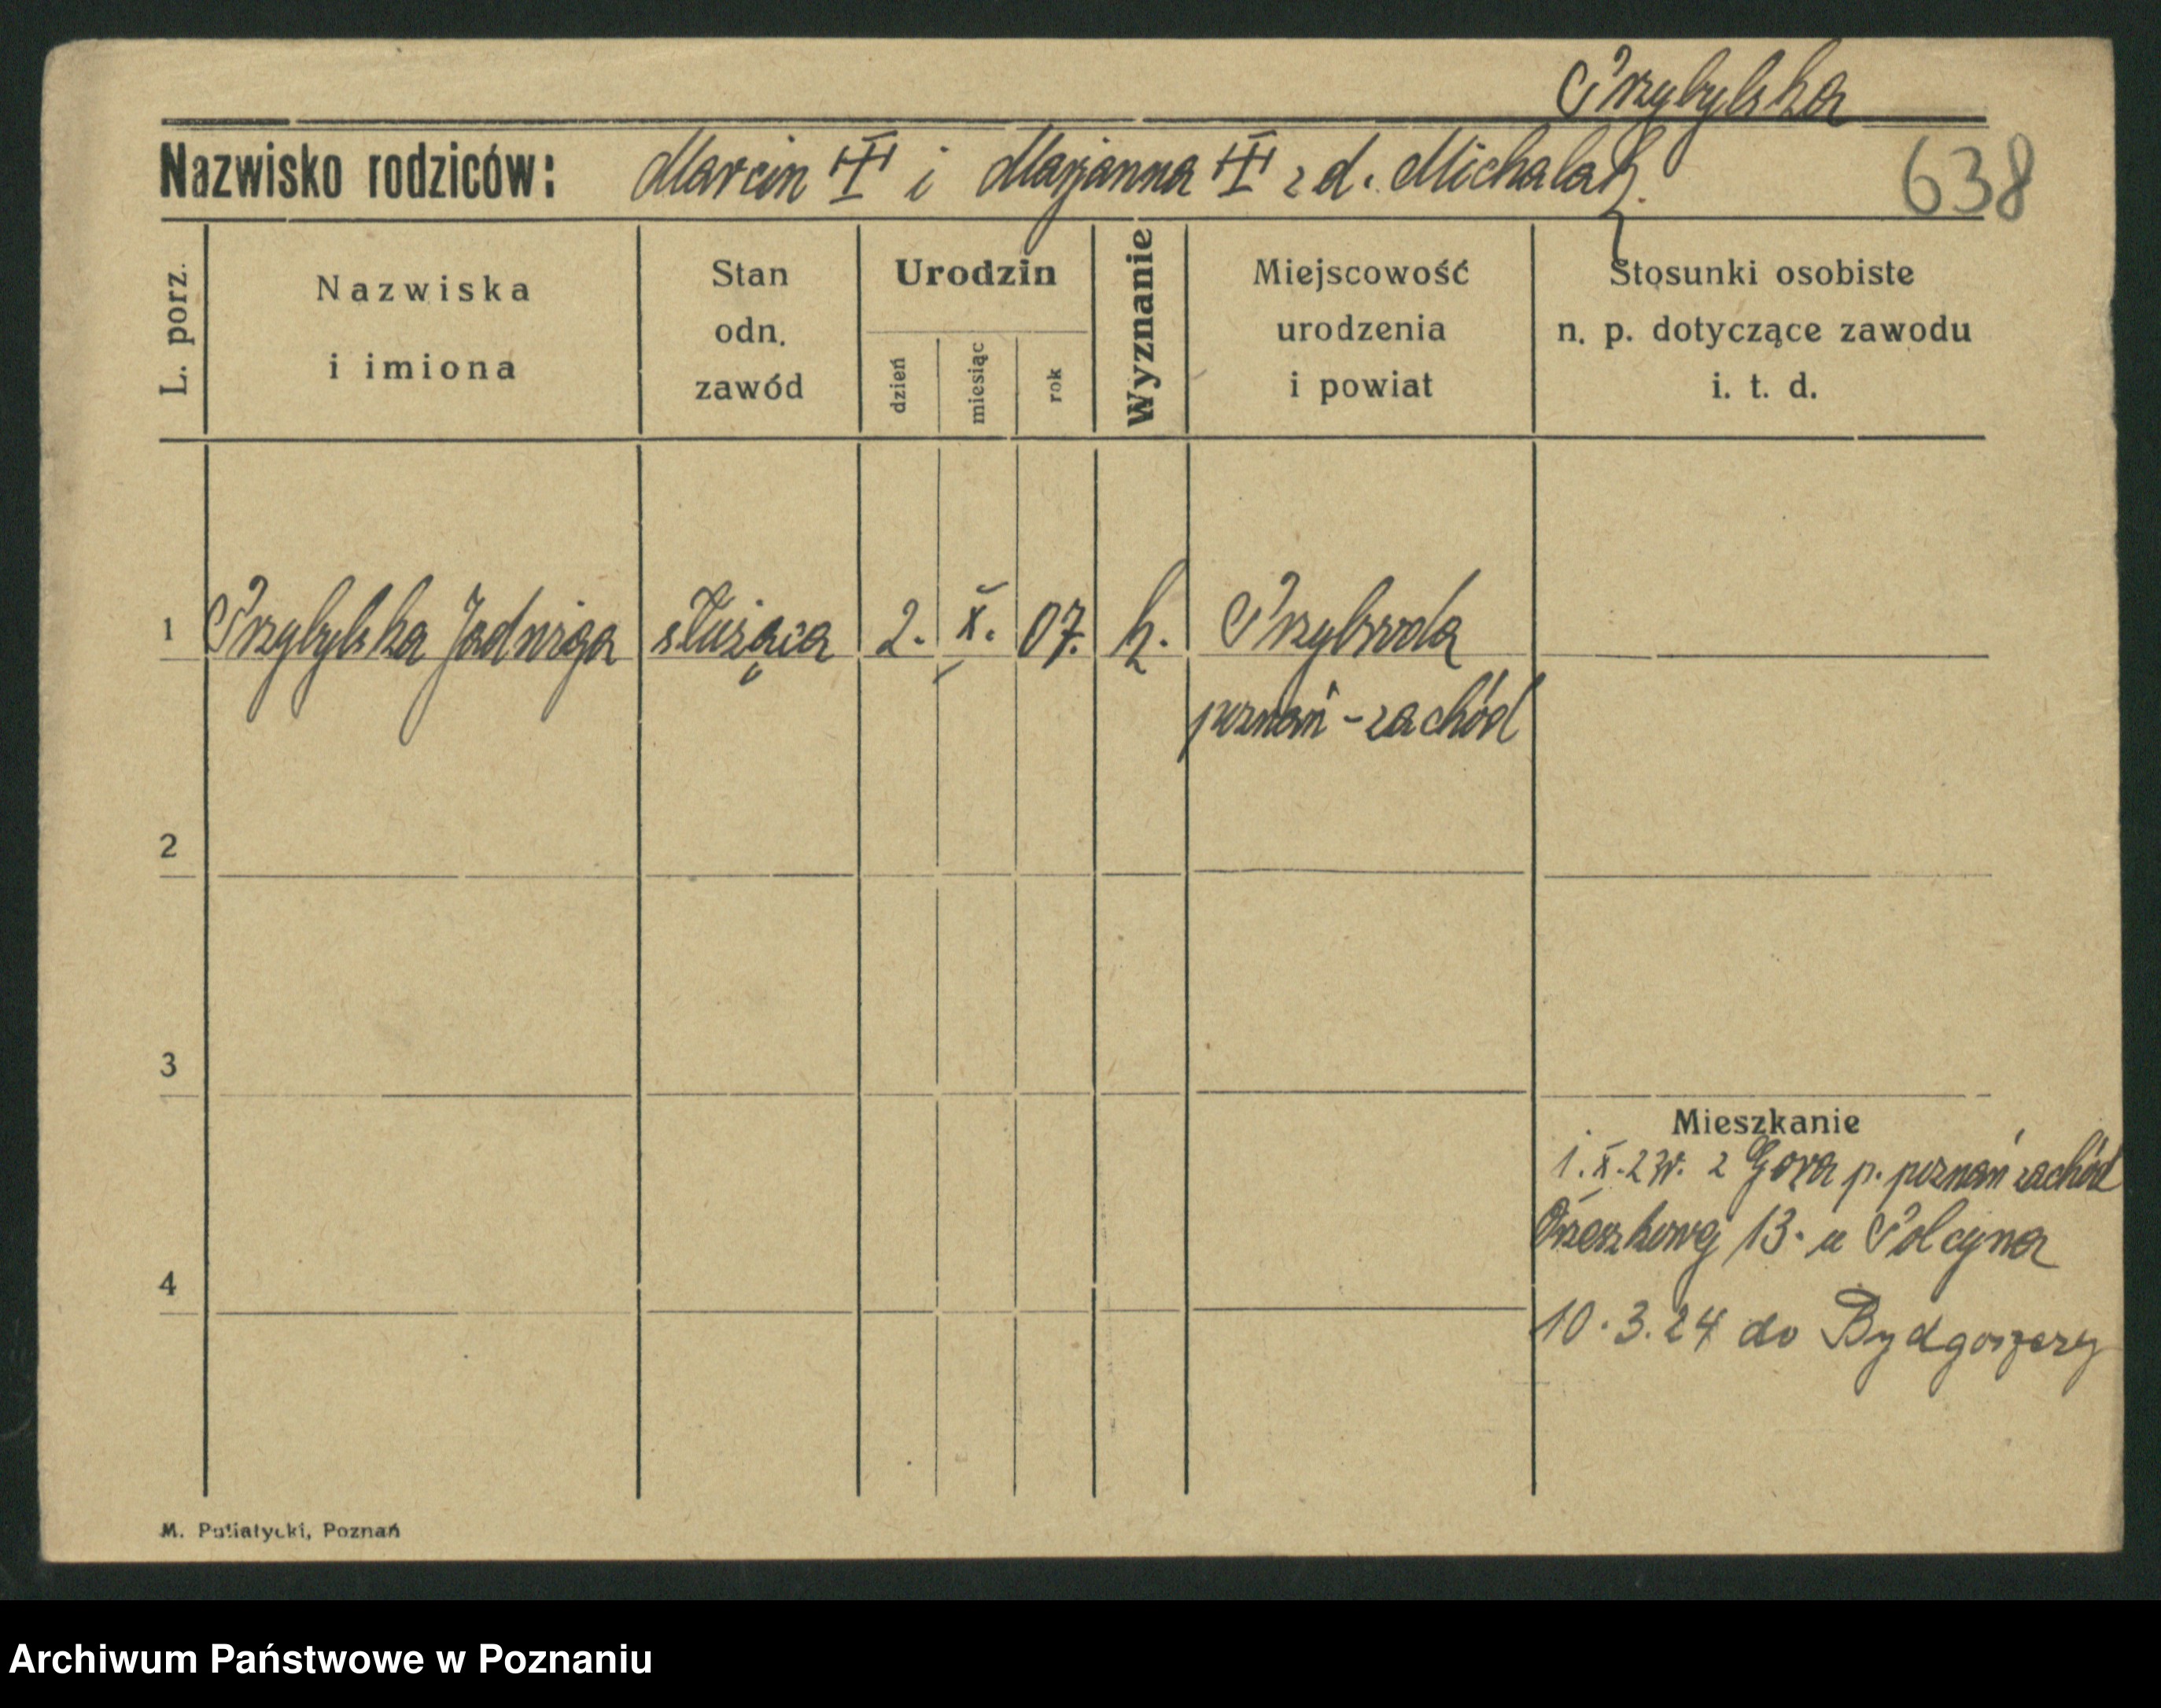 Przybylska
Nazwisko rodziców: Marcin i Marjanna z d. Michalak.
638
L. porz.
Nazwiska
i imiona
Stan
odn.
zawód
Urodzin
dzień
miesiąc
rok
Wyznanie
Miejscowość
urodzenia
i powiat
Stosunki osobiste
n. p. dotyczące zawodu
i. t. d.
1 Przybylska Jadwiga służąca 2. X. 07. k. Przybroda
poznań-zachód
2
3
Mieszkanie
1.X.23r. z Gora p. poznań zachód
Orzeszkowej 13. u Polcyna
4
10.3.24 do Bydgoszczy
M. Putiatycki, Poznań
Archiwum Państwowe w Poznaniu